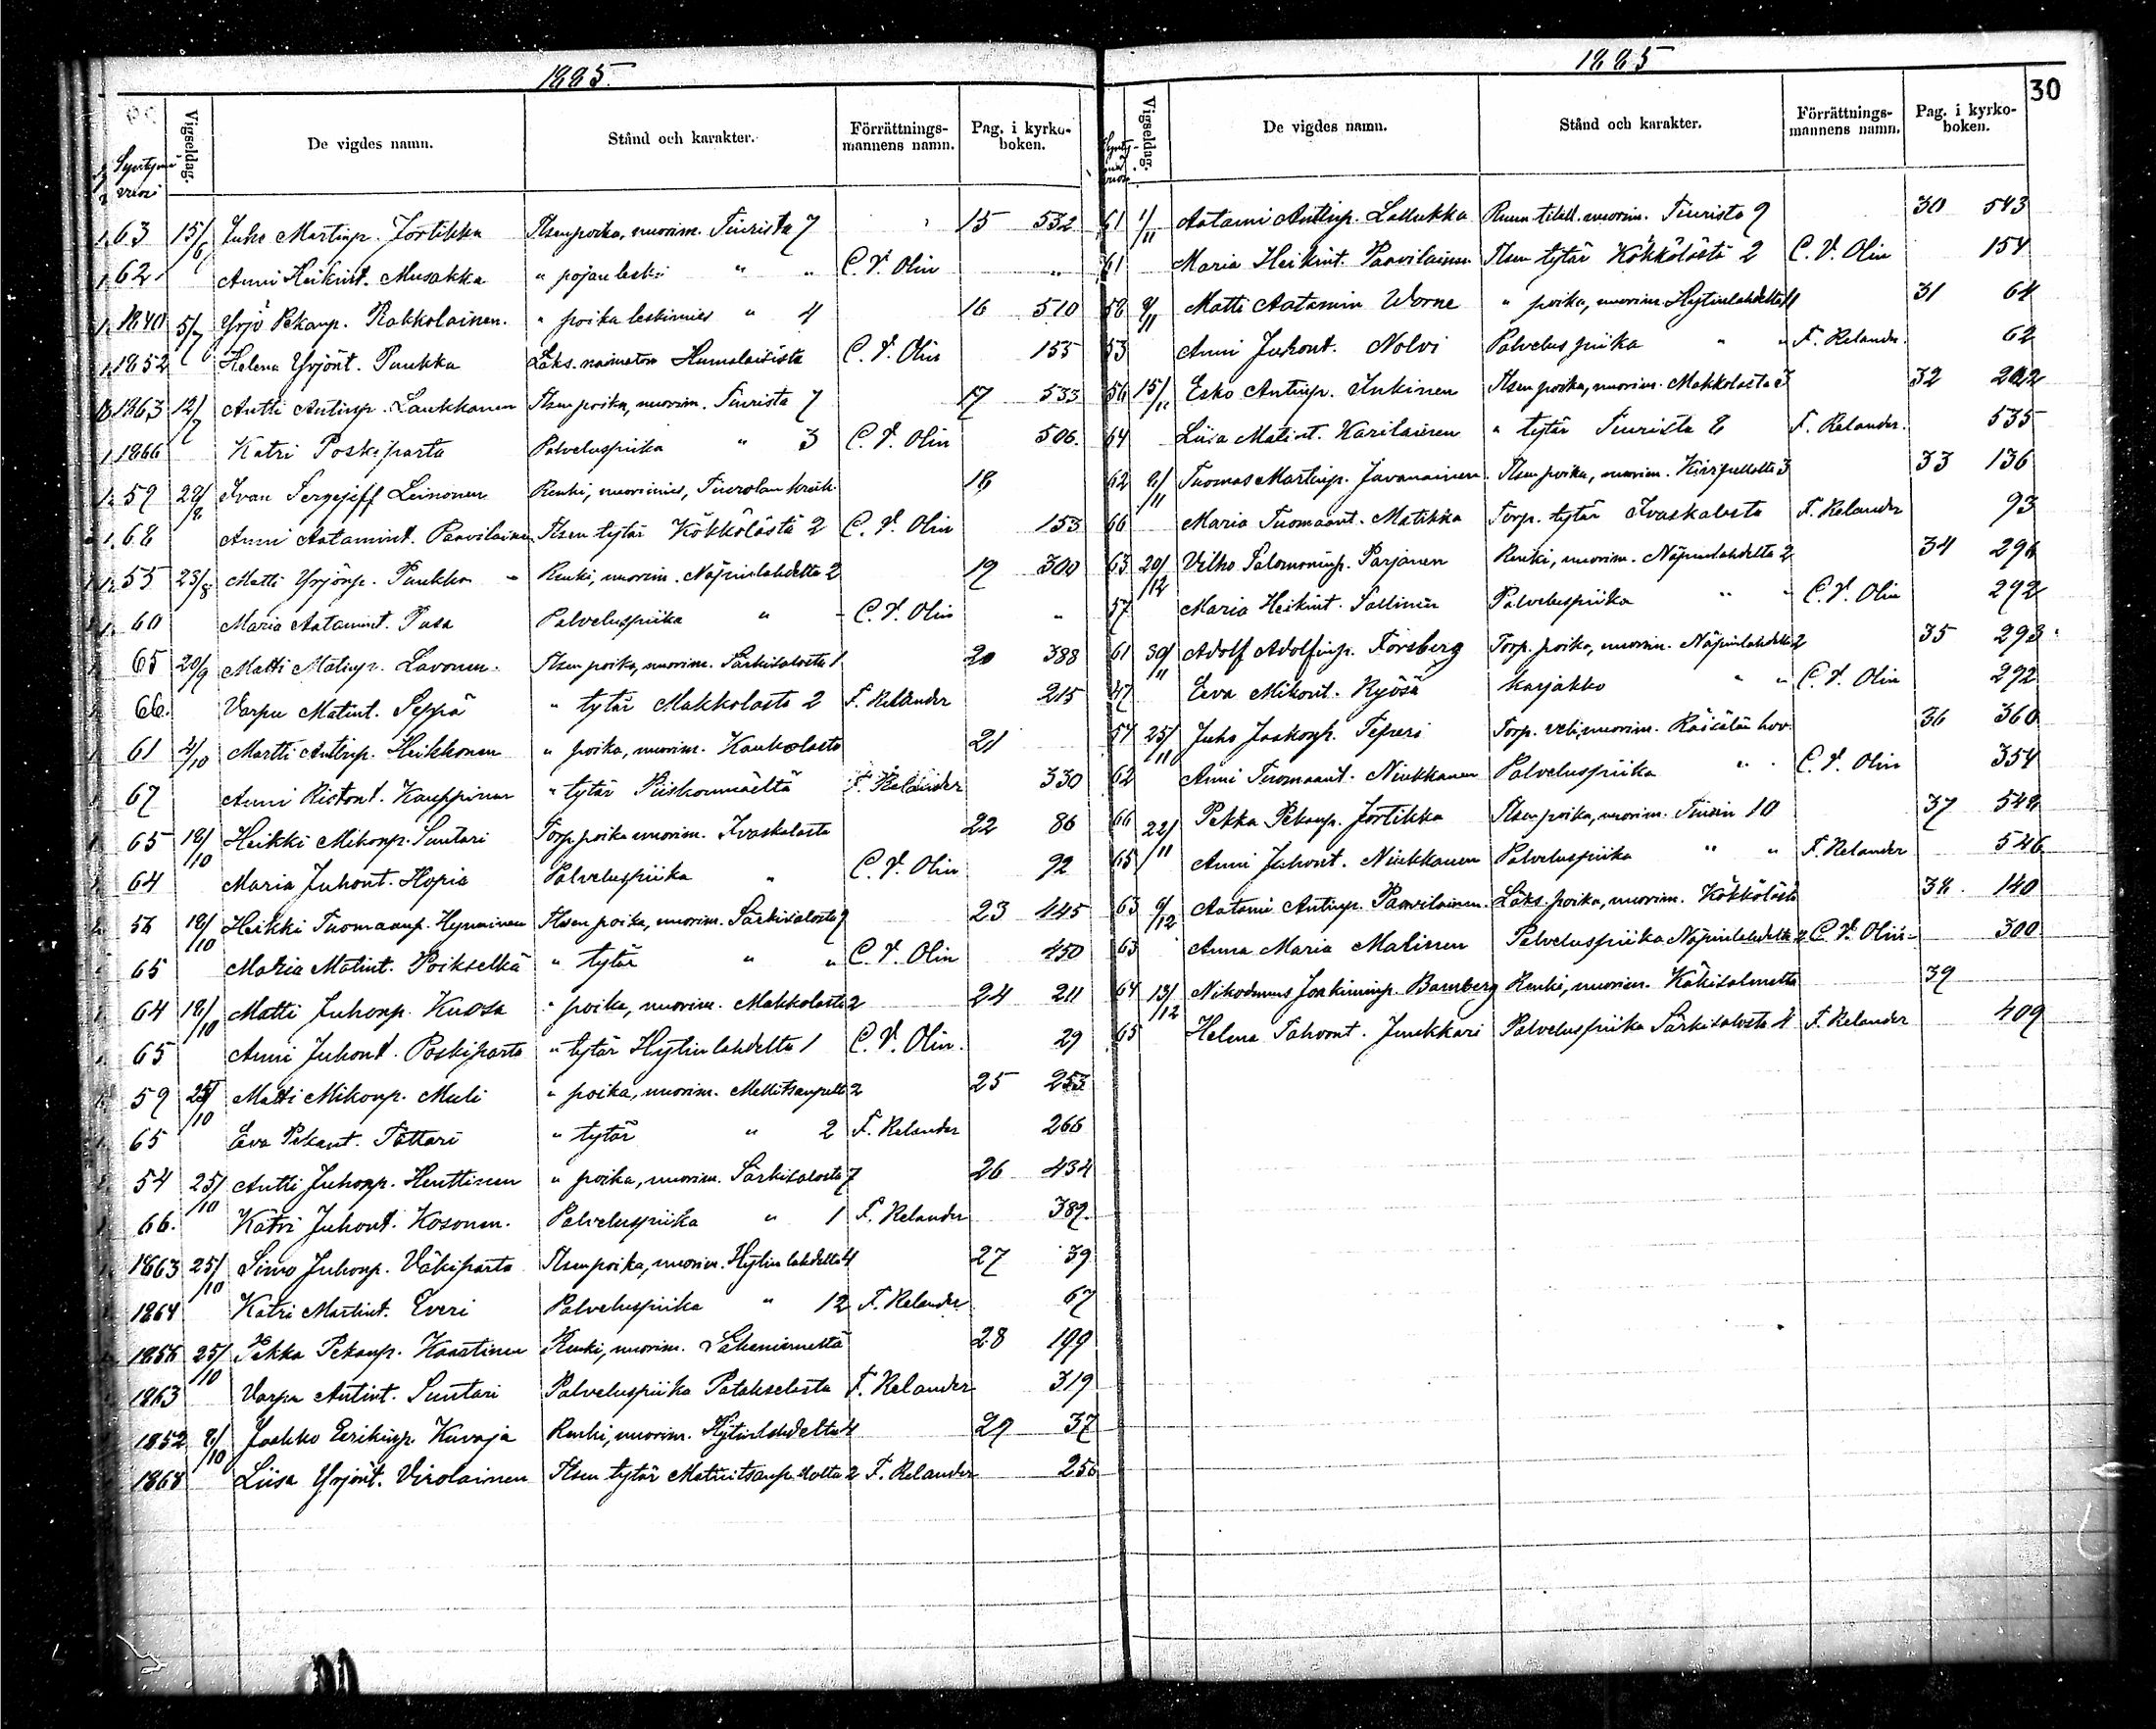 1885.
Syntymä vuosi
Vigseldag.
De vigdes namn.
Stånd och karakter.
Förrättningsmannens namn.
Pag. i kyrkoboken.
63 15/6 Juho Martinp. Jortikka Tlsen poika, nuorim. Tiurista 7 15 532
62 Anni Heikint. Musakka " pojan leski " " C. V. Olin "
1840 5/7 Yrjö Pekanp. Rakkolainen. " poika leskimies " 4 16 510
1852 Helena Yrjönt. Puukka Läks. naimaton Humalaisista C. V. Olin 155
1863 12/7 Antti Antinp. Laukkanen Tlsen poika, nuorim. Tiurista 7 17 533
1866 Katri Poskiparta Palveluspiika " 3 C. V. Olin 506.
59 29/8 Ivan Sergejeff Leinonen Renki, nuorimies, Tiurolan 18
68 Anni Aatamint. Paavilainen Tlsen tytär Kökkölästä 2 C. V. Olin 153
55 23/8 Matti Yrjönp. Puukka Renki, nuorim. Näpinlahdelta 2 19 300
60 Maria Aatamint. Pusa Palveluspiika " C. V. Olin "
65 20/9 Matti Matinp. Lavonen. Tlsen poika, nuorim. Särkisalosta 1 20 388
66. Varpu Matint. Seppä " tytär Makkolasta 2 F. Relander 215
61 4/10 Martti Antinp. Heikkonen " poika, nuorim. Kaukolasta 21
67 Anni Ristont. Kauppinen " tytär Piiskonmäeltä F. Relander 330
65 18/10 Heikki Mikonp. Suutari Torp. poika nuorim. Ivaskalasta 22 86
64 Maria Juhont. Hopia Palveluspiika " C. V. Olin 92
18/10 Heikki Tuomaanp. Hynninen Tlsen poika, nuorim. Särkisalosta 9 23 445
65 Maria Matint. Poikselkä " tytär " " C. V. Olin 450
64 18/10 Matti Juhonp. Kuosa " poika, nuorim. Makkolasta 2 24 211
65 Anni Juhont. Poskiparta " tytär Hytinlahdelta 1 C. V. Olin. 29
59 25/10 Matti Mikonp. Muli " poika, nuorim. 2 25 253
65 Eva Pekant. Tattari " tytär " 2 F. Relander 266
54 25/10 Antti Juhonp. Henttinen " poika, nuorim. Särkisalosta 7 26 434
66. Katri Juhont. Kosonen. Palveluspiika " 1 F. Relander 389.
1863 25/10 Simo Juhonp. Väkiparta Tlsen poika, nuorim. Hytinlahdelta 4 27 39
1864 Katri Martint. Everi Palveluspiika " 12 F. Relander 67
25/10 Pekka Pekanp. Kaastinen Renki, nuorim. 28 199
1863 Varpu Antint. Suutari Palveluspiika Patakselasta F. Relander 319
1852 8/10 Jaakko Eerikinp. Kuvaja Renki, nuorim. Hytinlahdelta 4 29 37
1868 Liisa Yrjönt. Virolainen Tlsen tytär 2 F. Relander 256
1885
30
Syntymä vuosi
Vigseldag.
De vigdes namn.
Stånd och karakter.
Förrättningsmannens namn.
Pag. i kyrkoboken.
61 1/11 Aatami Antinp. Lallukka Ruun. tilall. nuorim. Tiurista 9 30 543
61 Maria Heikint. Paavilainen Tlsen tytär Kökkölästä 2 C. V. Olin 154
58 8/11 Matti Aatamin Worne " poika, nuorim. Hytinlahdelta 31 64
53 Anni Juhont. Nolvi Palvelus piika " " F. Relander. 62
56 15/11 Esko Antinp. Inkinen Tlsen poika, nuorim. Makkolasta 3 32 222
64 Liisa Matint. Karilainen " tytär Tiurista 8 F. Relander. 535
62 8/11 Tuomas Martinp. Javanainen Tlsen poika, nuorim. 3 33 136
66 Maria Tuomaant. Matikka Torp. tytär Ivaskalasta F. Relander 93
63 20/12 Vilho Salomoninp. Parjanen Renki, nuorim. Näpinlahdelta 2 34 296
57 Maria Heikint. Sallinen Palveluspiika " " C. V. Olin 292
61 30/11 Adolf Adolfinp. Forsberg Torp. poika, nuorim. Näpinlahdelta 2 35 293.
47 Eeva Mikont. Ryösä Karjakko " " C. V. Olin 292
54 25/11 Juho Jaakonp. Teperi Torp. veli, nuorim. Räisälän hov. 36 360
62 Anni Tuomaant. Niukkanen Palveluspiika " C. V. Olin 354
66 22/11 Pekka Pekanp. Jortikka Tlsen poika, nuorim. Tiurin 10 37 548
65 Anni Juhont. Niukkanen Palveluspiika " " F. Relander 546
63 6/12 Aatami Antinp. Paavilainen. Läks. poika, nuorim. Kökköläst 38. 140
63 Anna Maria Malinen Palveluspiika Näpinlahdelta 2 C. V. Olin 300
64 13/12 Nikodemus Joakiminp. Bamberg Renki, nuorim. Käkisalmelta 39
65 Helena Tahvont. Junkkari Palveluspiika Särkisalosta 4 F. Relander 409